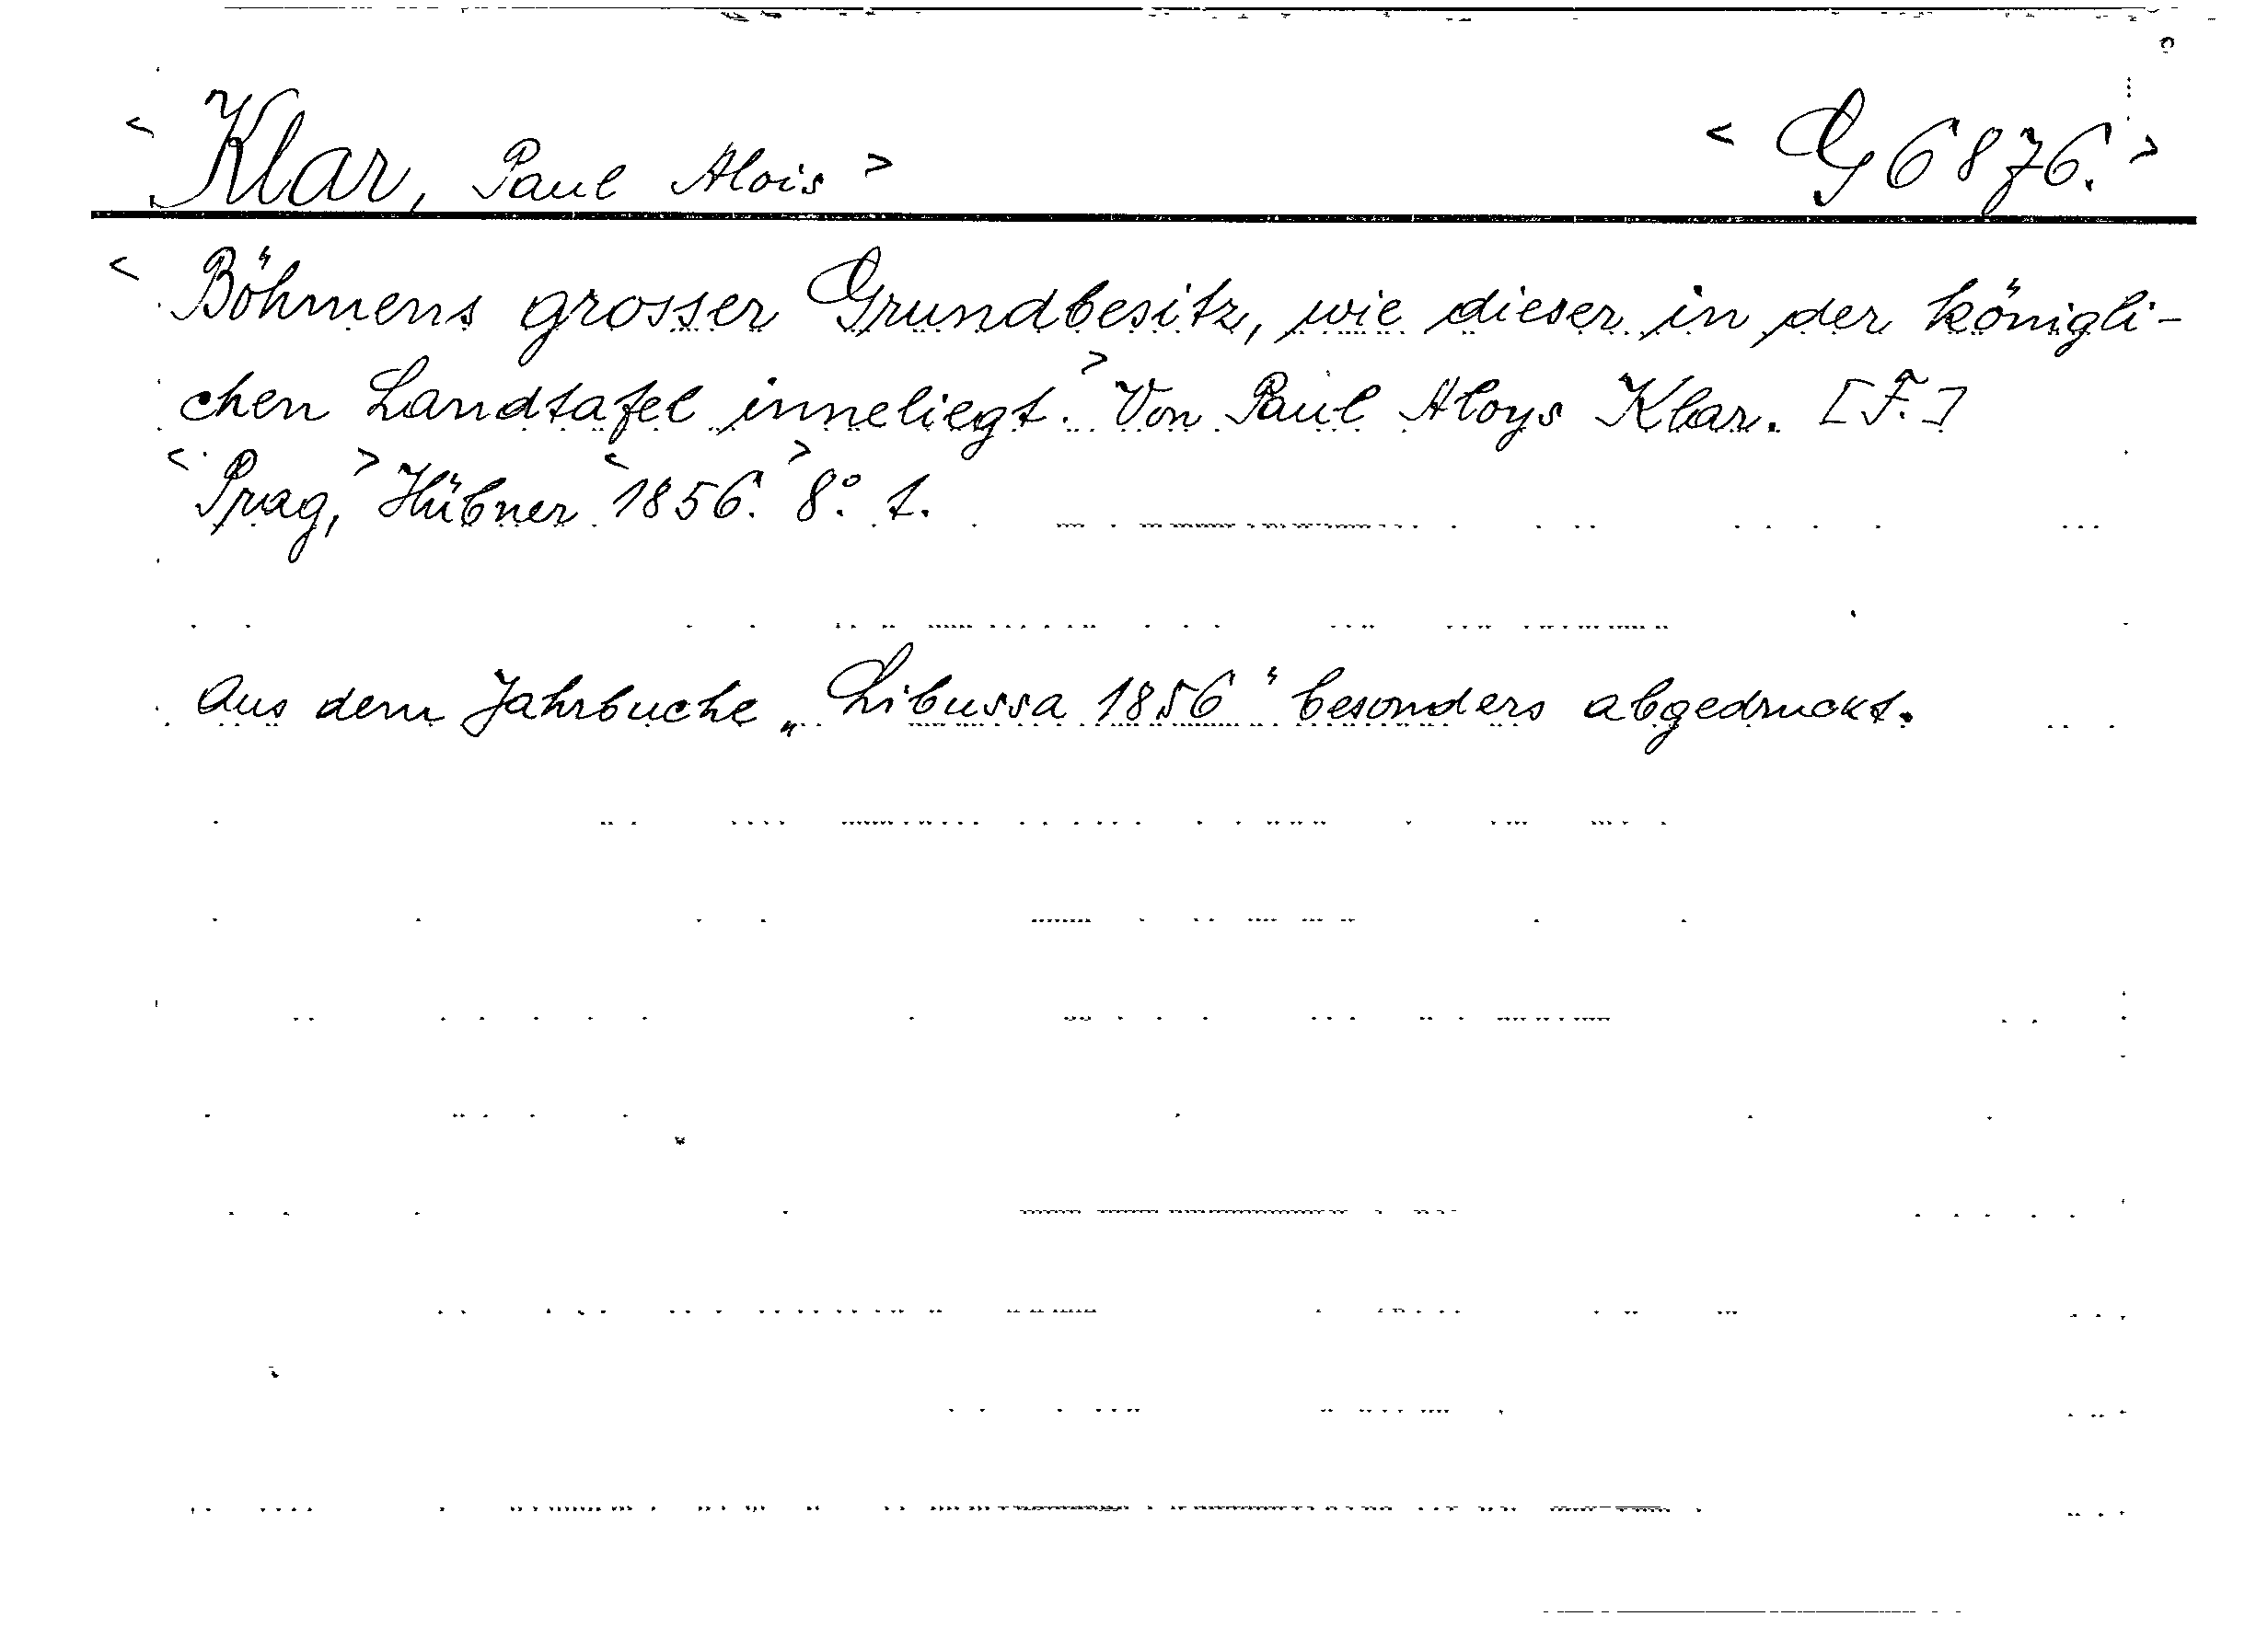 < Klar, Paul Alois > < G 6876. >
< Böhmens grosser Grundbesitz, wie dieser in der königli-
chen Landtafel inneliegt. > Von Paul Aloys Klar. [F.]
< Prag, > Hübner < 1856. > 8° 1.
Aus dem Jahrbuche „Libussa 1856" besonders abgedruckt.